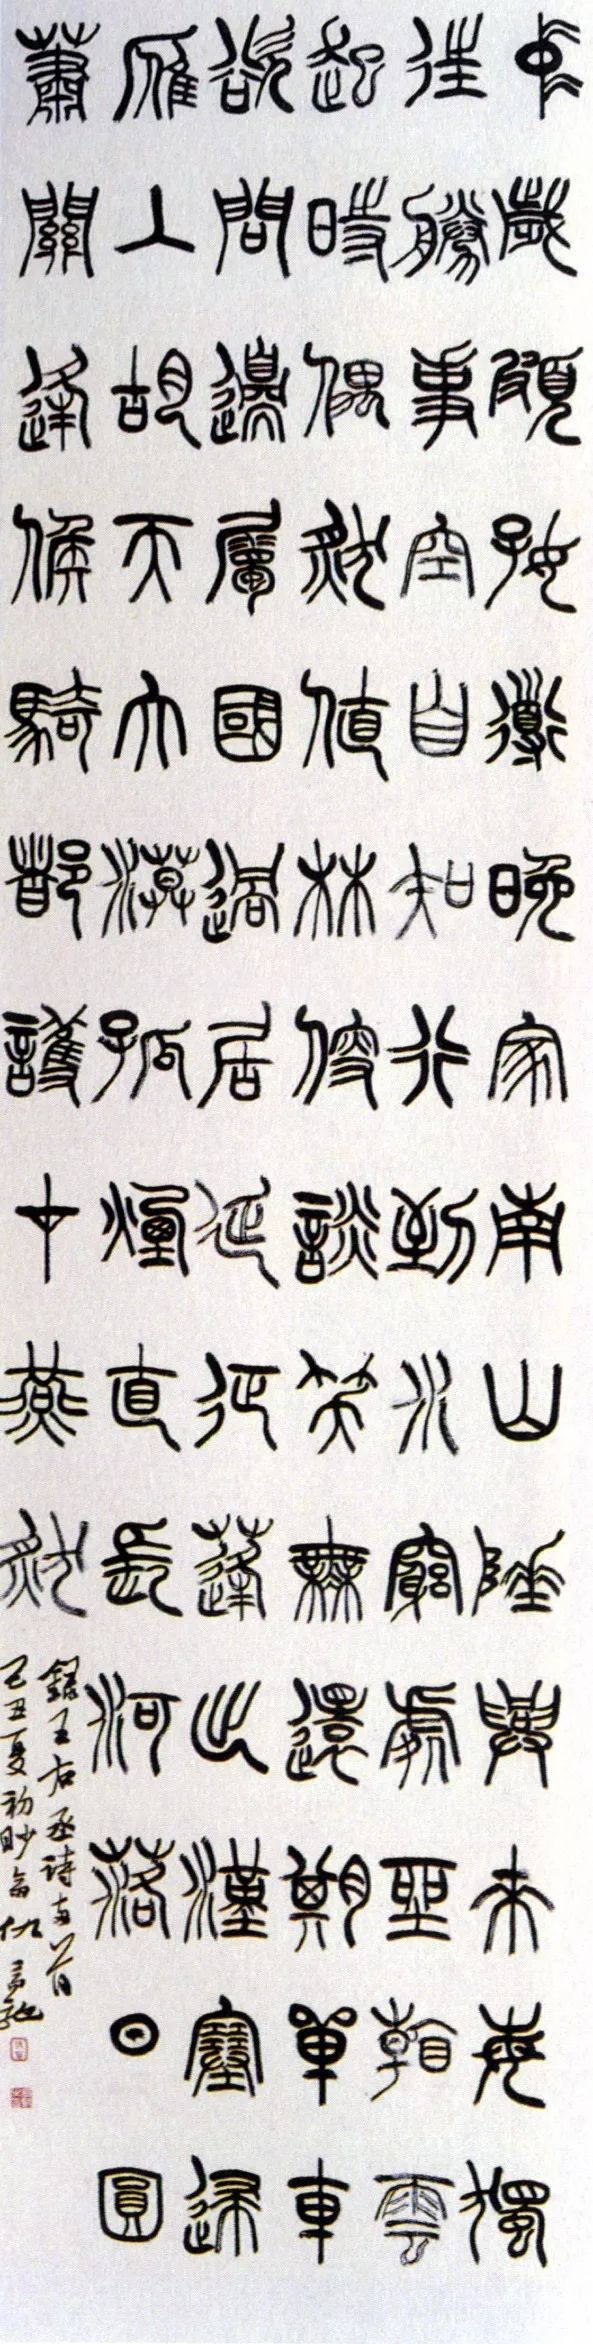 中歲頗好道晚家南山陲興來每獨
往勝事空自知行到水窮處坐看雲
起時偶然值林叟談笑無還期單車
欲問邊屬國過居延征蓬出漢塞歸
雁入胡天大漠孤煙直長河落日圓
蕭關逢候騎都護在燕然
錄王右丞詩兩首
己丑夏初仇高馳